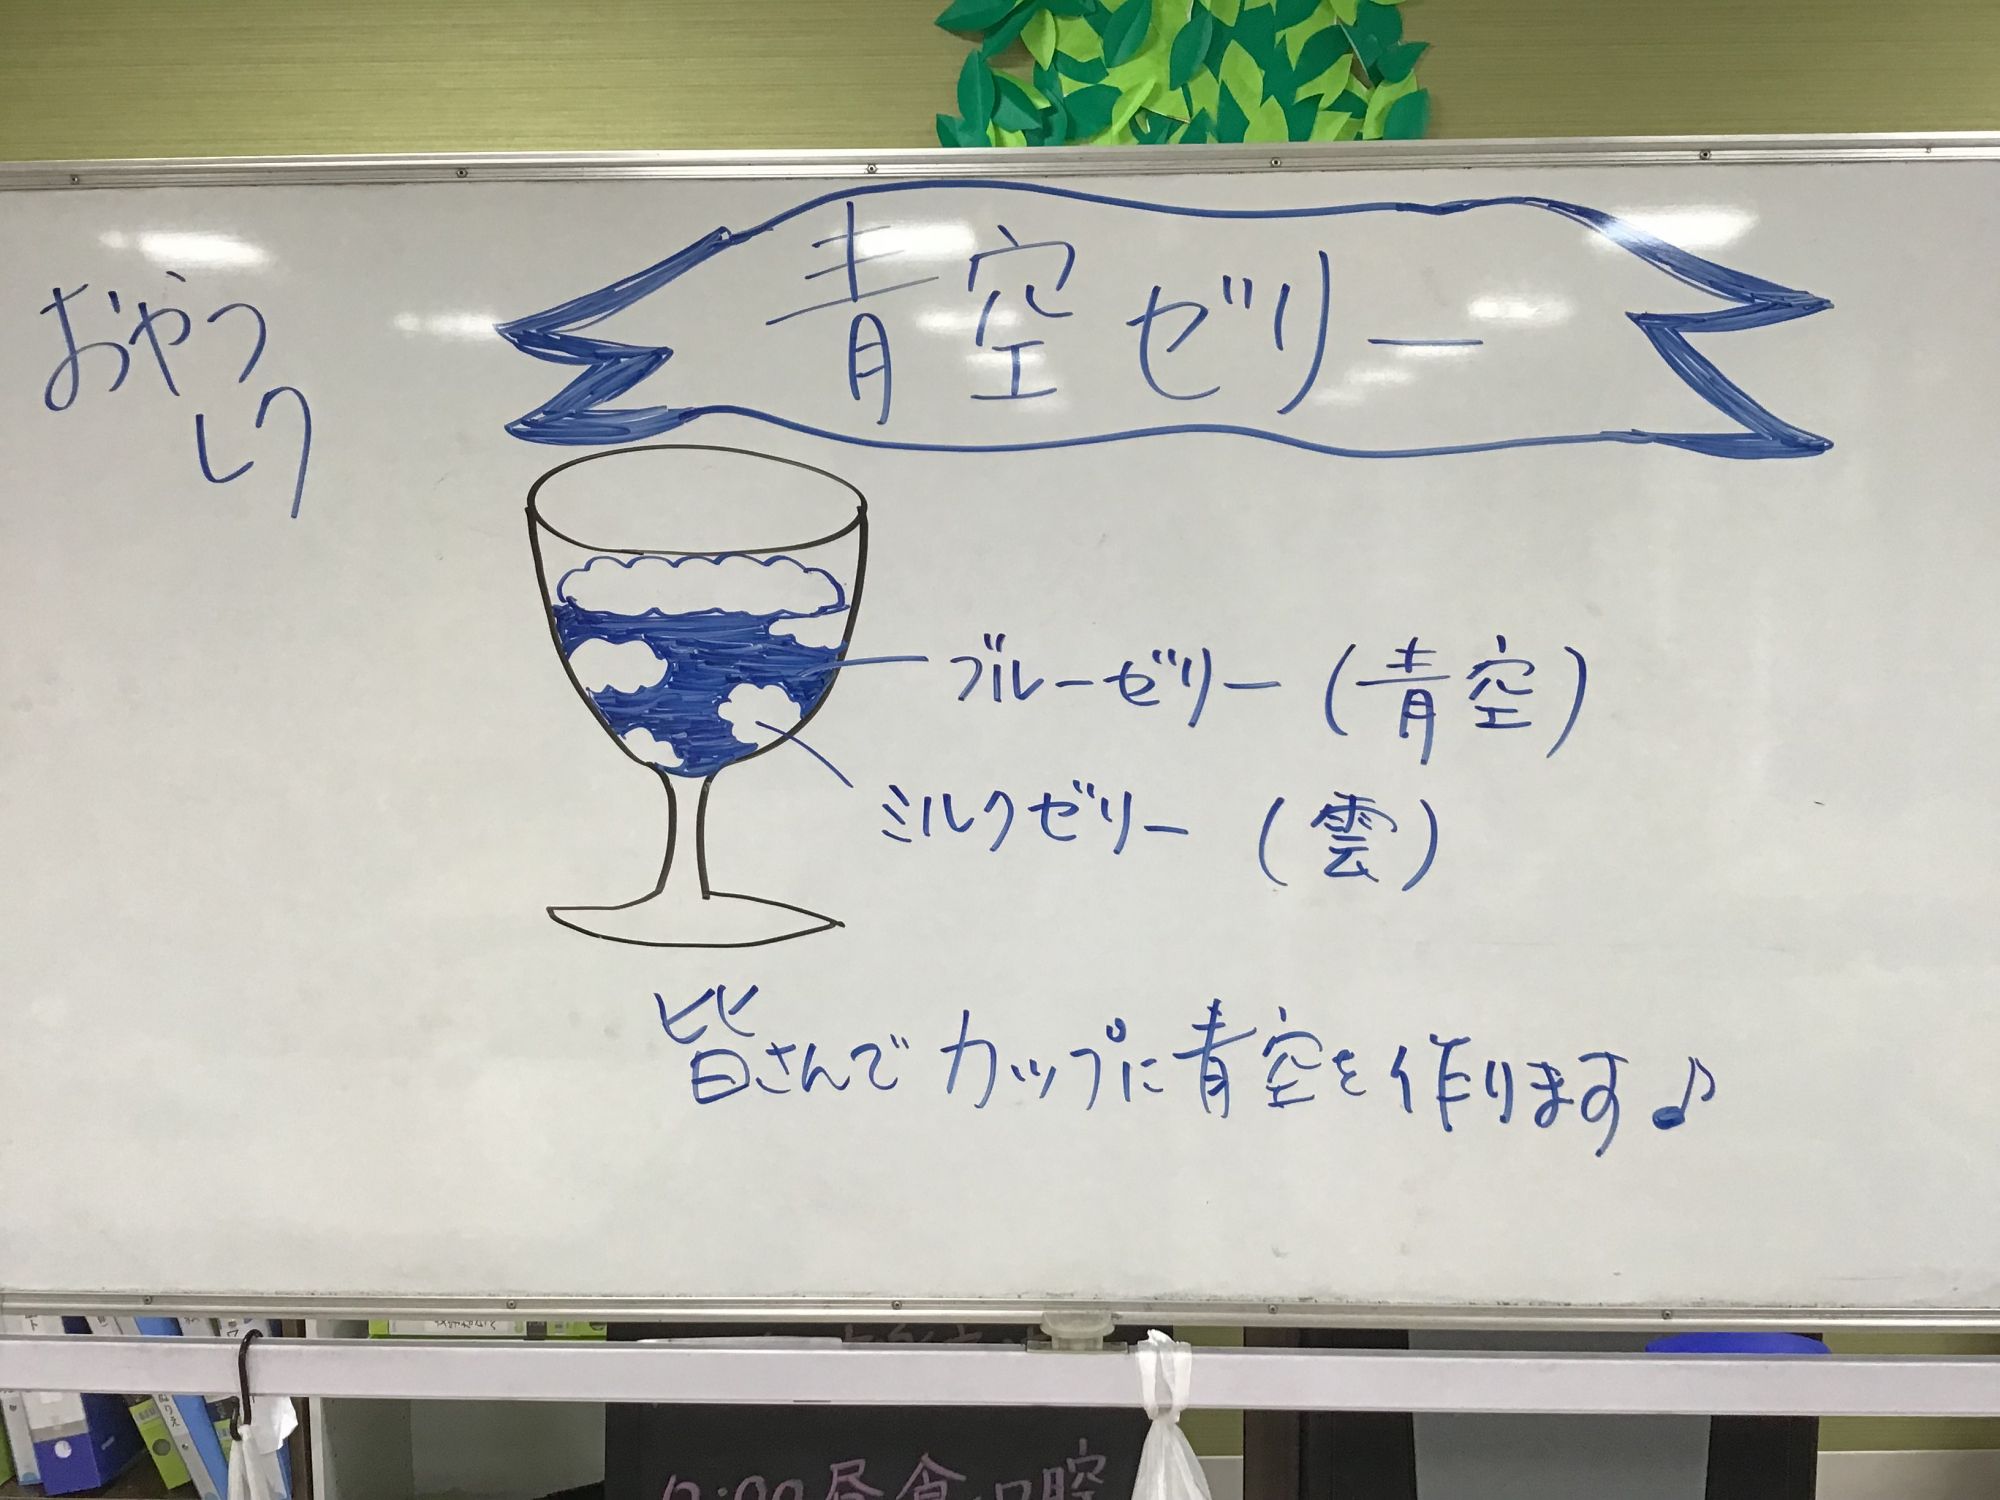 おやつ
レク
青空ゼリー
ブルーゼリー(青空)
ミルクゼリー(雲)
皆さんでカップに青空を作ります♪
ぬりえ
昼食 口腔